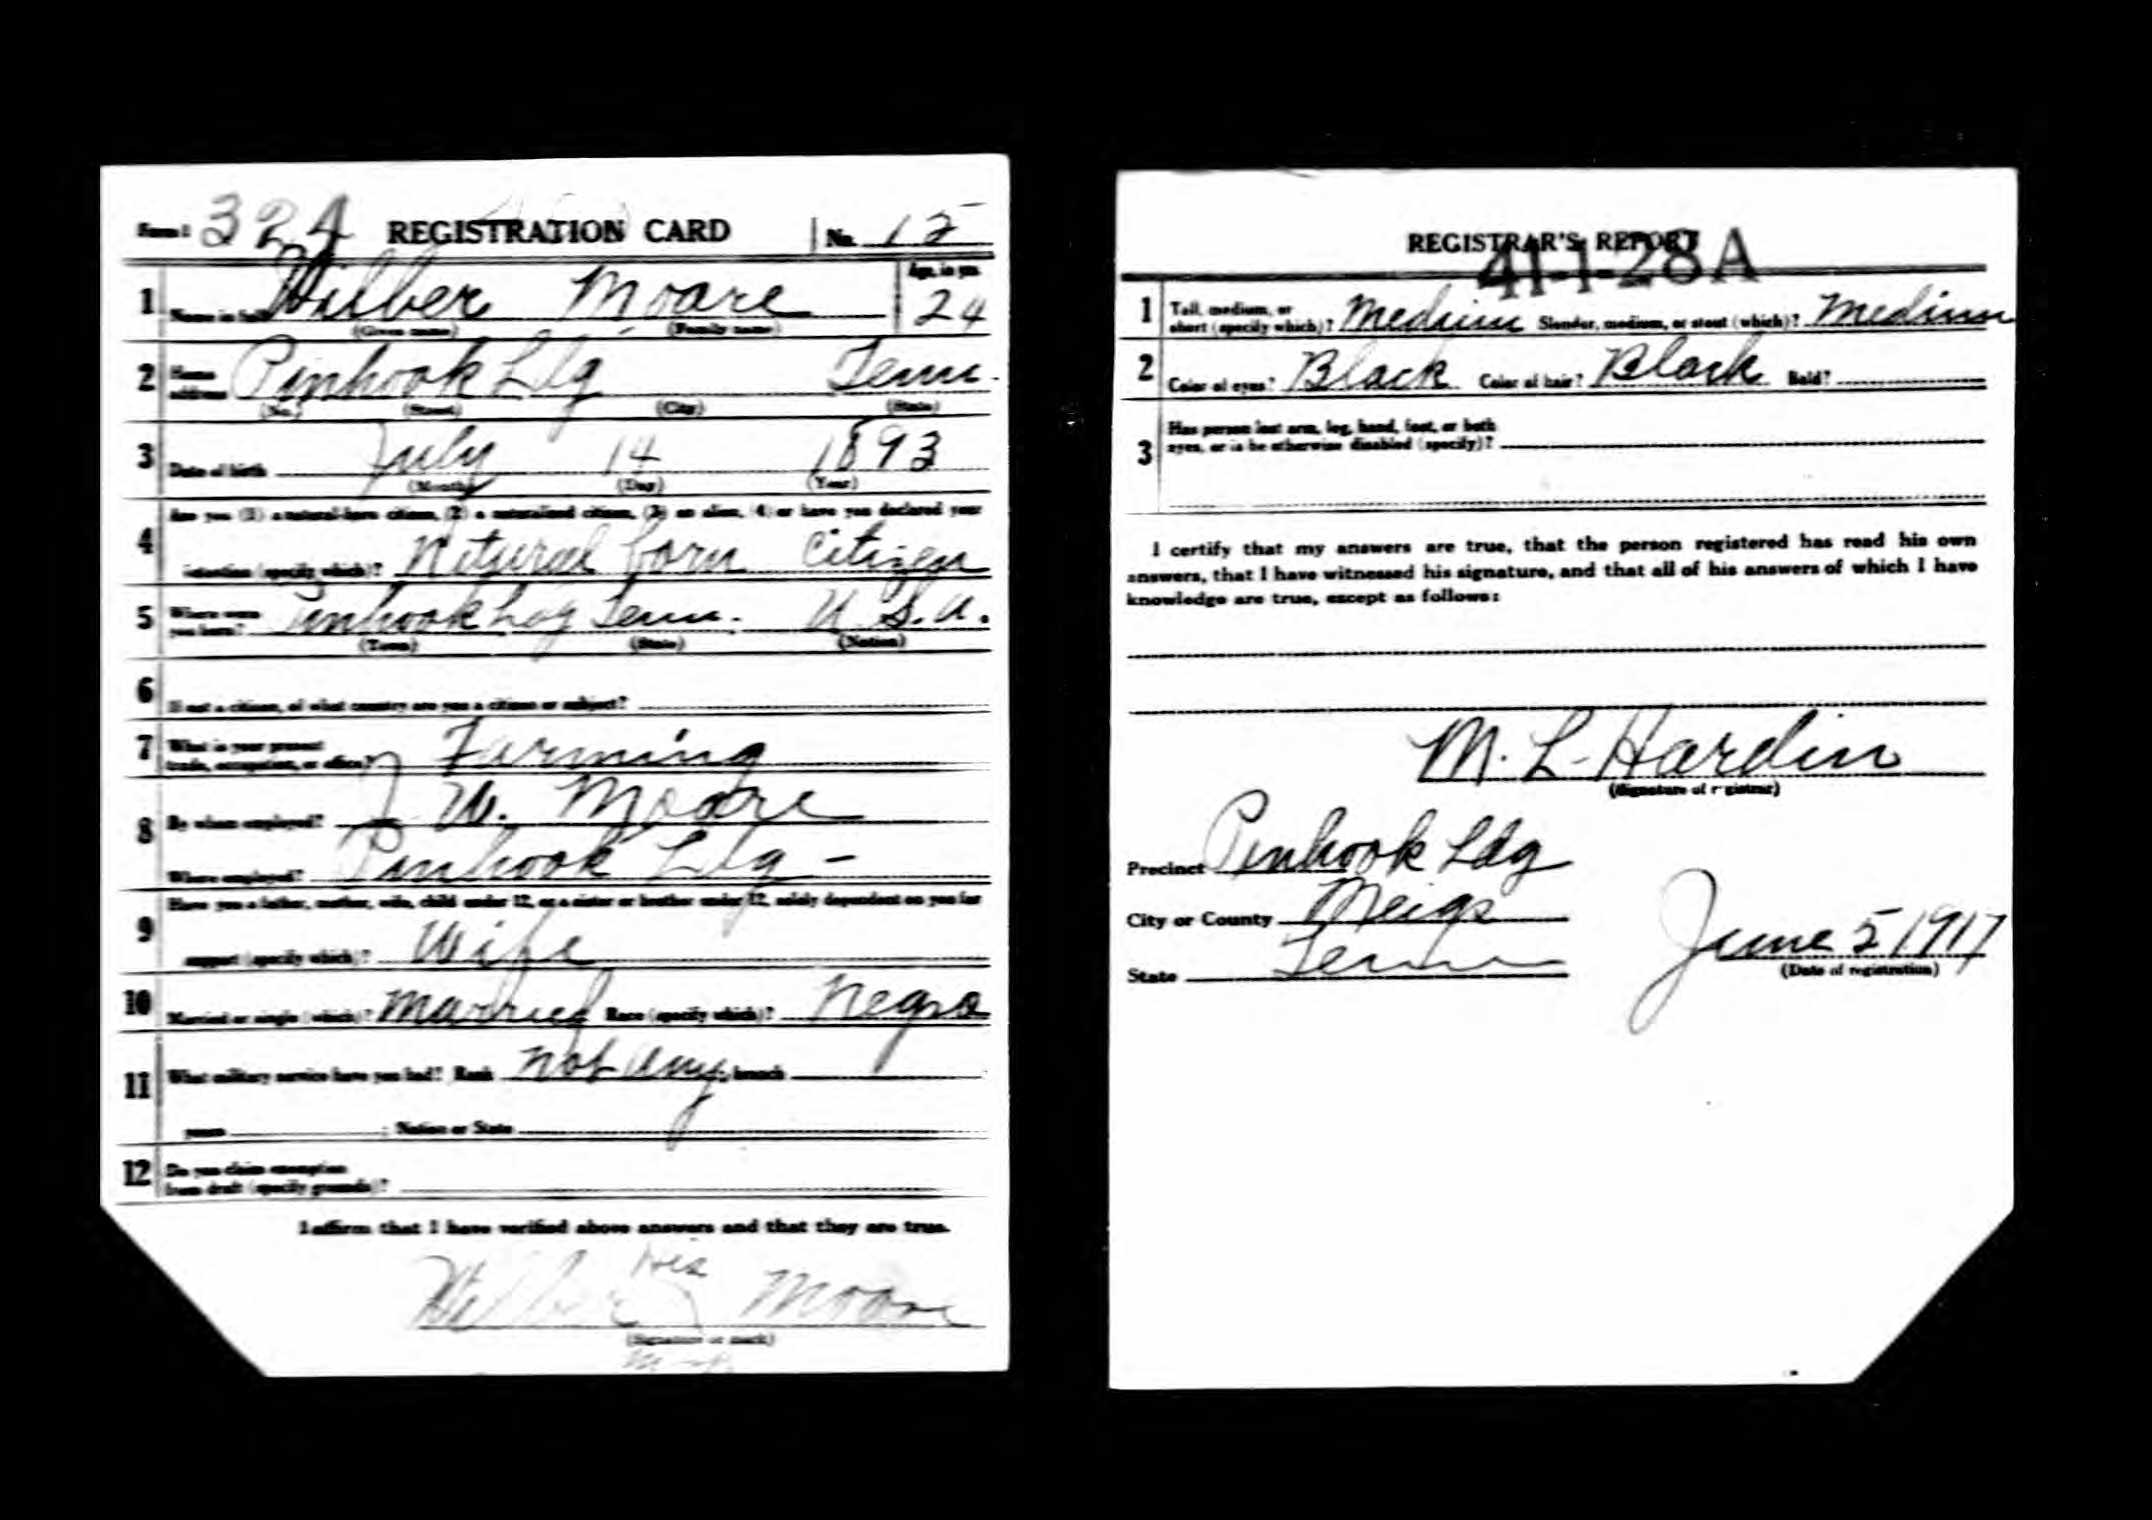 Form 1 324 REGISTRATION CARD No. 15
1 Name in full Wilber Moore Age, in yrs. 24
(Given name) (Family name)
2 Home address Pinhook Ldg Tenn.
(No.) (Street) (City) (State)
3 Date of birth July 14 1893
(Month) (Day) (Year)
4 Are you (1) a natural-born citizen, (2) a naturalized citizen, (3) an alien, (4) or have you declared your
intention (specify which)? Natural born Citizen
5 Where were you born? Pinhook Ldg Tenn. U.S.A.
(Town) (State) (Nation)
6 If not a citizen, of what country are you a citizen or subject?
7 What is your present trade, occupation, or office? Farming
8 By whom employed? J. W. Moore
Where employed? Pinhook Ldg -
9 Have you a father, mother, wife, child under 12, or a sister or brother under 12, solely dependent on you for
support (specify which)? Wife
10 Married or single (which)? Married Race (specify which)? Negro
11 What military service have you had? Rank Not any; branch
years ; Nation or State
12 Do you claim exemption
from draft (specify grounds)?
I affirm that I have verified above answers and that they are true.
His
Wilber Moore
(Signature or mark)
REGISTRAR'S REPORT
41-1-28 A
1 Tall, medium, or
short (specify which)? Medium Slender, medium, or stout (which)? Medium
2 Color of eyes? Black Color of hair? Black Bald?
3 Has person lost arm, leg, hand, foot, or both
eyes, or is he otherwise disabled (specify)?
I certify that my answers are true, that the person registered has read his own
answers, that I have witnessed his signature, and that all of his answers of which I have
knowledge are true, except as follows:
M. L. Hardin
(Signature of registrar)
Precinct Pinhook Ldg
City or County Meigs
State Tenn
June 5 1917
(Date of registration)